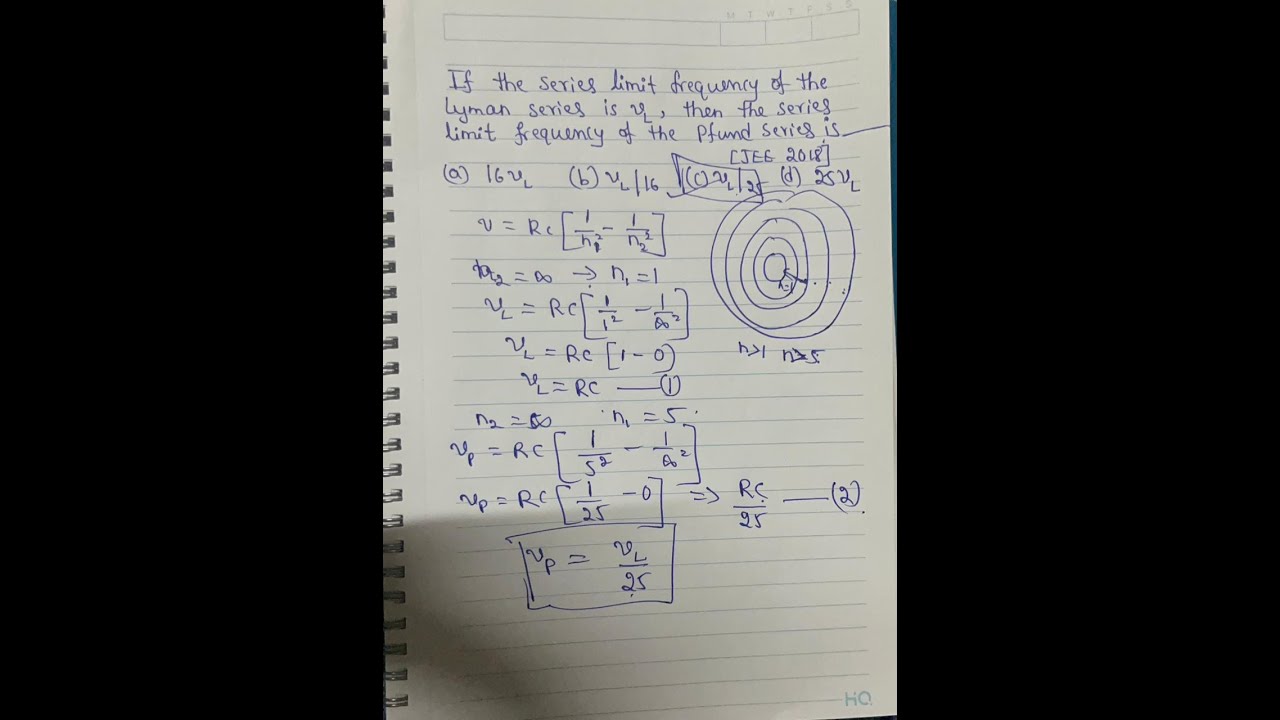 M T W T F S S
If the series limit frequency of the
Lyman series is νL, then the series
limit frequency of the Pfund series is
[JEE 2018]
(a) 16νL (b) νL/16 (c) νL/25 (d) 25νL
ν = Rc[1/n₁² - 1/n₂²]
n₂ = ∞ → n₁ = 1
νL = RC[1/1² - 1/∞²]
νL = RC [1 - 0)
νL = RC — (1)
n=1
n>1 n>5
n₂ = ∞ n₁ = 5
νp = RC[1/5² - 1/∞²]
νp = RC[1/25 - 0] => RC/25 — (2)
νp = νL/25
HQ